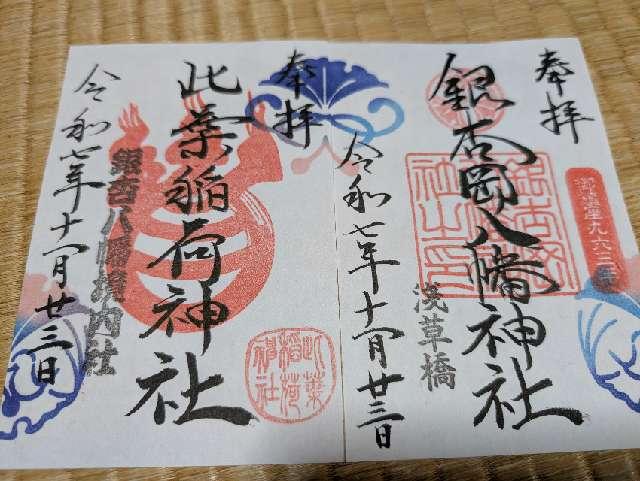 奉拝
御鎮座九六三年
銀杏岡八幡神社
浅草橋
令和七年十一月廿三日
奉拝
此葉稲荷神社
此葉稲荷神社
銀杏八幡境内社
令和七年十一月廿三日